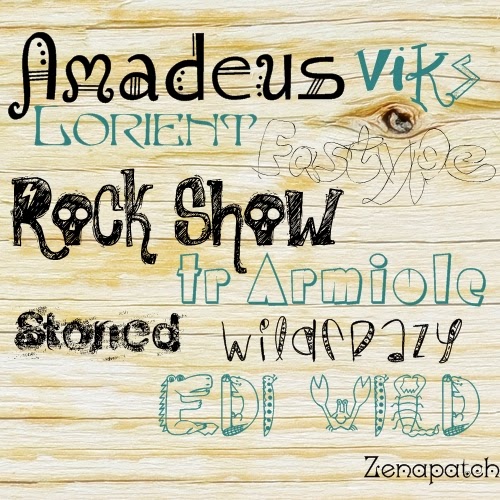 Amadeus viks
Lorient
Fastype
Rock Show
tr Armiole
Stoned wildcrazy
EDI WILD
Zenapatch